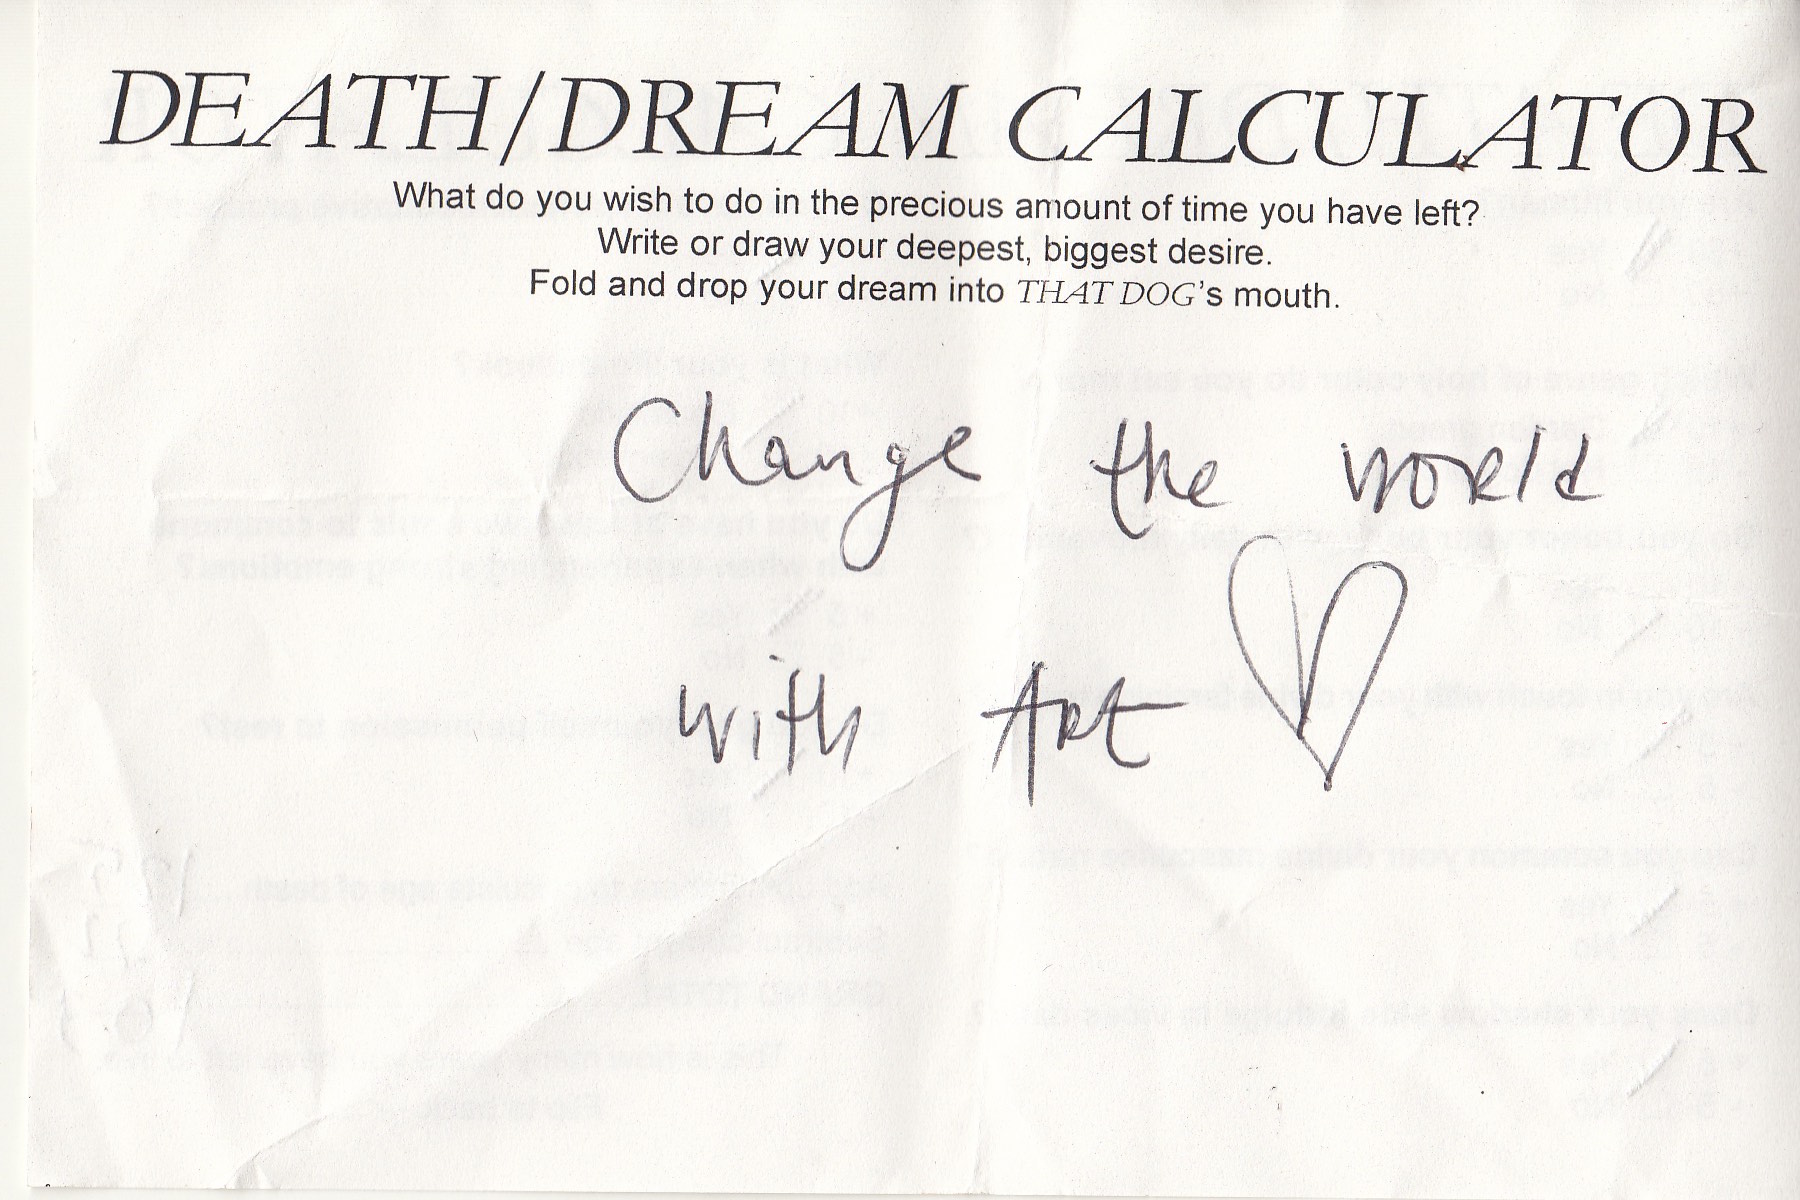 DEATH/DREAM CALCULATOR
What do you wish to do in the precious amount of time you have left?
Write or draw your deepest, biggest desire.
Fold and drop your dream into THAT DOG's mouth.
Change the world
with Art